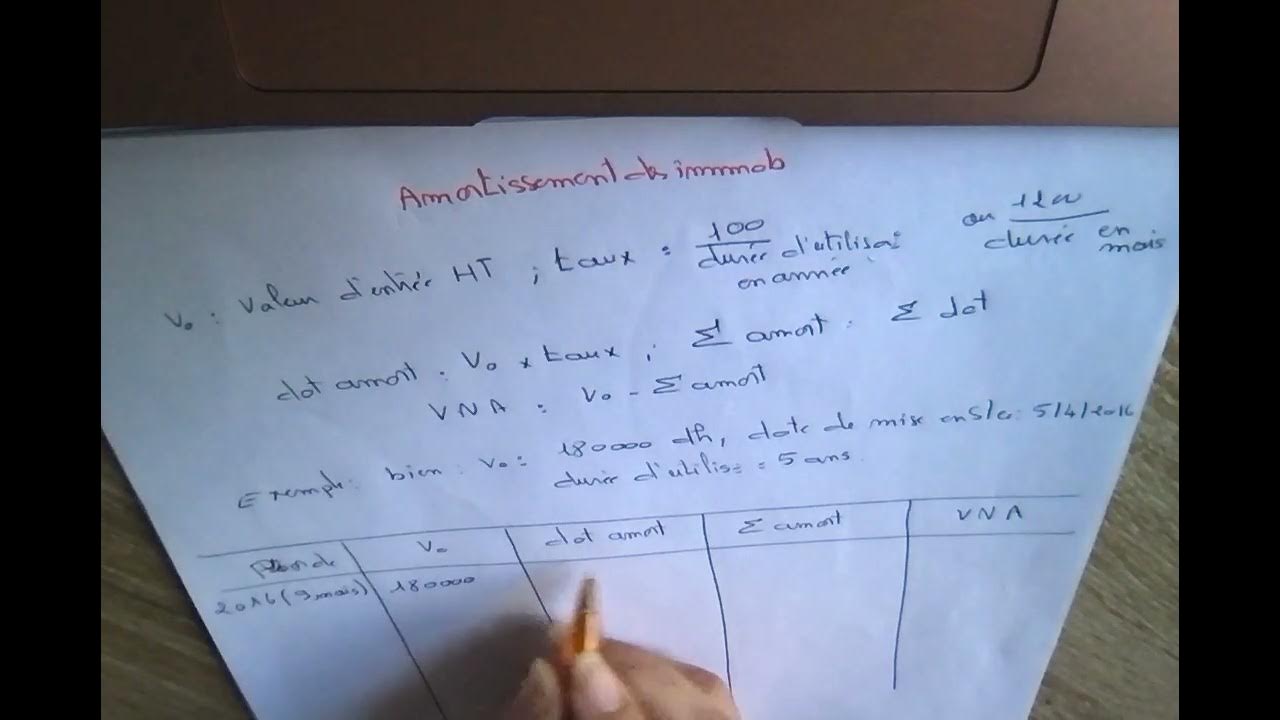 Amortissement des immob
V₀ : Valeur d'entrée HT ; taux = 100 / durée d'utilisa° en année ou 1200 / durée en mois
dot amort = V₀ x taux ; Σ amort = Σ dot
VNA = V₀ - Σ amort
Exemple : bien : V₀ = 180000 dh, date de mise en S/ce : 5/4/2016
durée d'utilis° = 5 ans
Période V₀ dot amort Σ amort VNA
2016 (9 mois) 180000